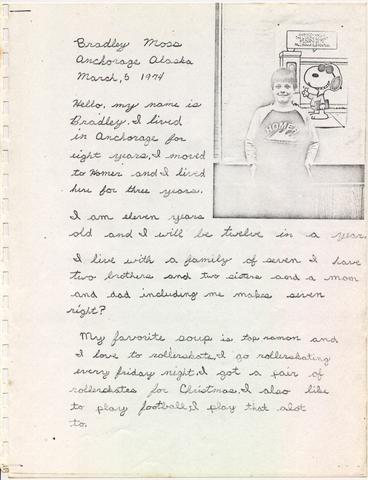 Bradley Moss
Anchorage Alaska
March, 5 1974
HOMER
Hello, my name is
Bradley. I lived
in Anchorage for
eight years. I moved
to Homer and I lived
here for three years.
I am eleven years
old and I will be twelve in a year.
I live with a family of seven I have
two brothers and two sisters and a mom
and dad including me makes seven
right?
My favorite soup is top ramon and
I love to rollerskate. I go rollerskating
every friday night. I got a pair of
rollerskates for Christmas. I also like
to play football, I play that alot
to.